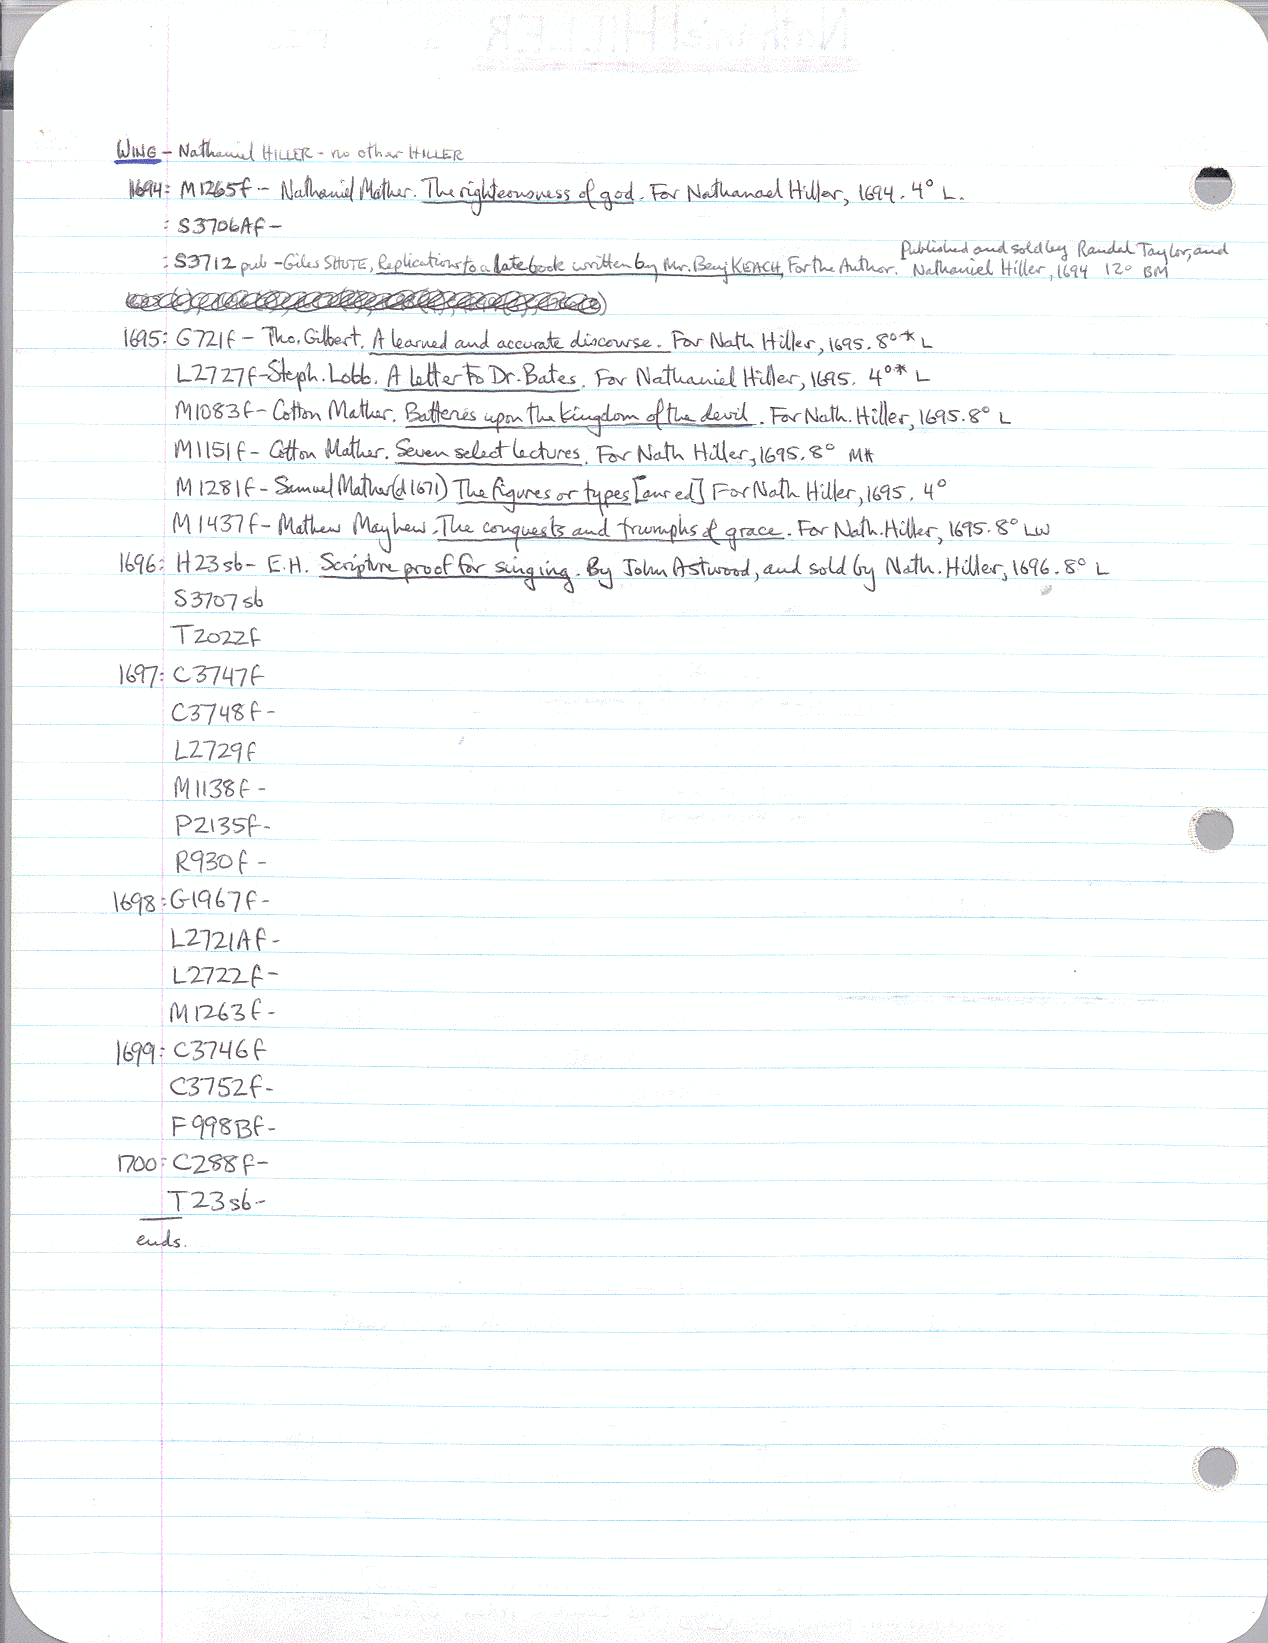 WING - Nathaniel HILLER - no other HILLER
1694: M1265f - Nathaniel Mather. The righteousness of god. For Nathanael Hiller, 1694. 4° L.
: S3706Af -
Published and sold by Randal Taylor, and
: S3712 pub - Giles SHUTE, Replications to a late book written by Mr. Benj KEACH, For the Author. Nathaniel Hiller, 1694 12° BM
1695: G721f - Tho. Gilbert. A learned and accurate discourse. For Nath Hiller, 1695. 8°* L
L2727f - Steph. Lobb. A letter to Dr. Bates. For Nathaniel Hiller, 1695. 4°* L
M1083f - Cotton Mather. Batteries upon the kingdom of the devil. For Nath. Hiller, 1695. 8° L
M1151f - Cotton Mather. Seven select lectures. For Nath Hiller, 1695. 8° MH
M1281f - Samuel Mather (d 1671) The figures or types [anr ed] For Nath Hiller, 1695. 4°
M1437f - Mathew Mayhew. The conquests and triumphs of grace. For Nath. Hiller, 1695. 8° LW
1696: H23sb - E.H. Scripture proof for singing. By John Astwood, and sold by Nath. Hiller, 1696. 8° L
S3707sb
T2022f
1697: C3747f
C3748f -
L2729f
M1138f -
P2135f -
R930f -
1698: G1967f -
L2721Af -
L2722f -
M1263f -
1699: C3746f
C3752f -
F998Bf -
1700: C288f -
T23sb -
ends.